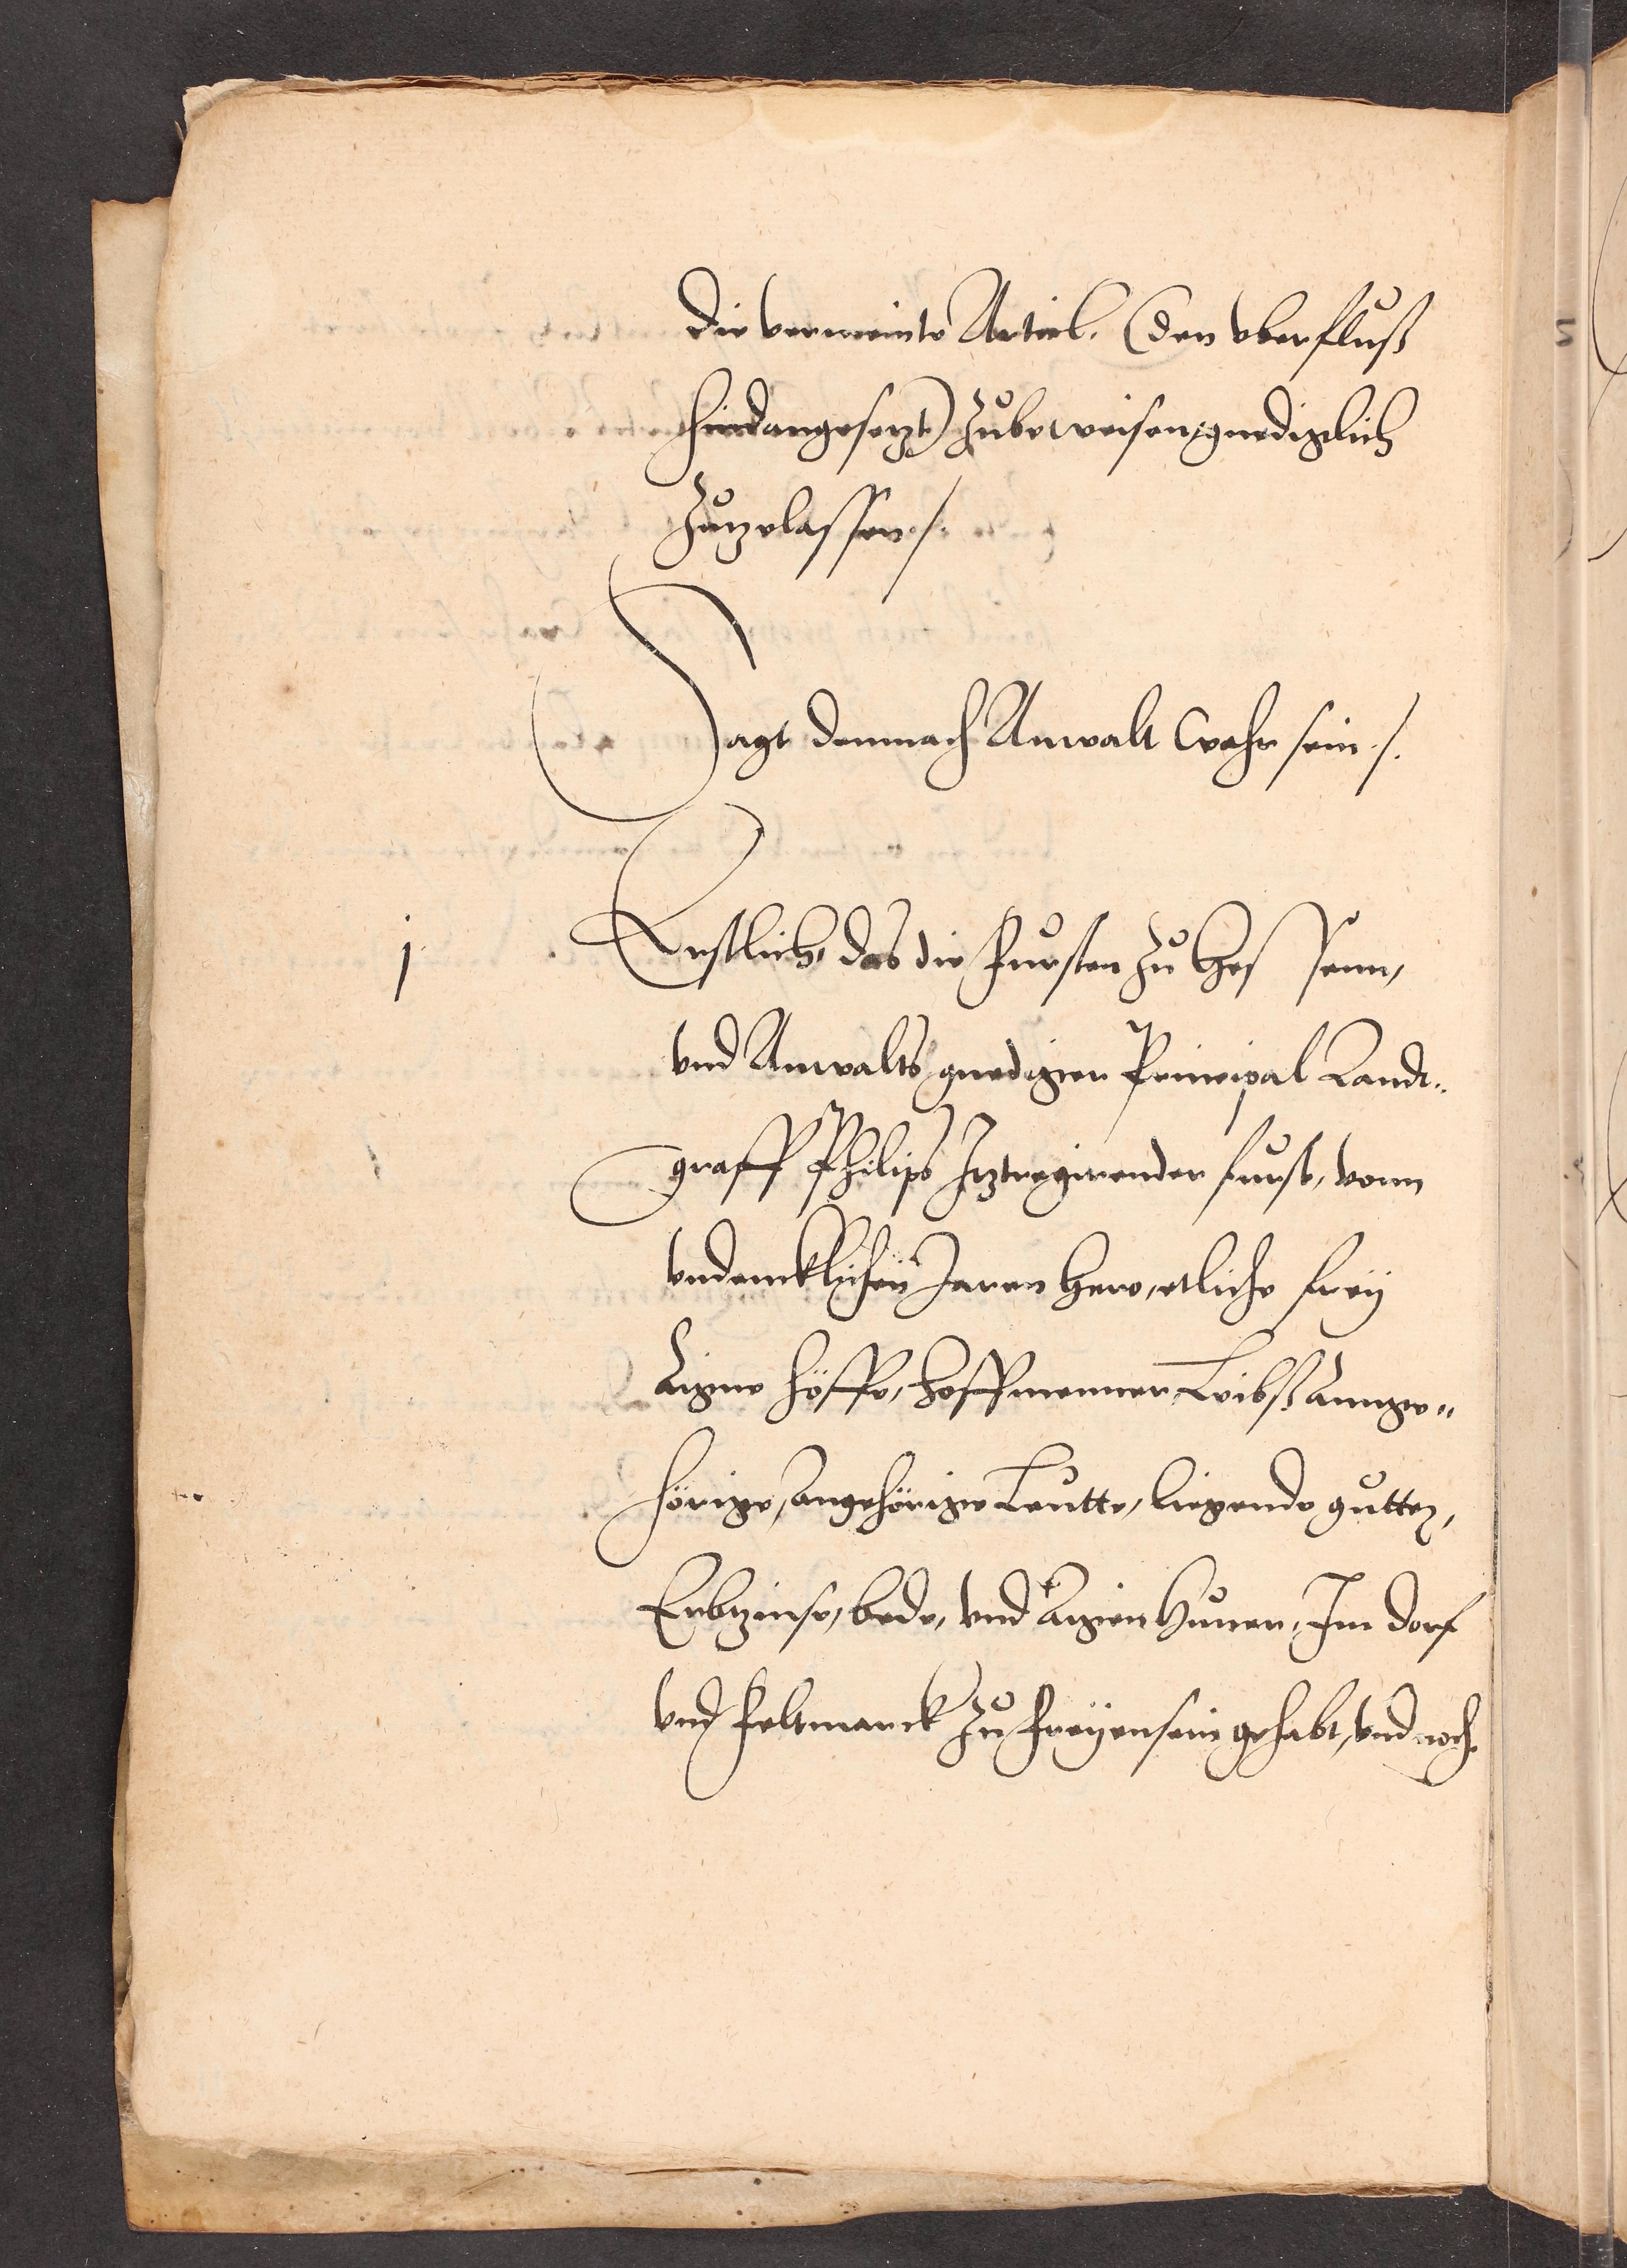 die vermeinte Articl. (den vberfluß
hindangesetzt) zubeweisen, gnediglich
zutzelassen ./.
Sagt demnach Anwalt Wahr sein ./.
j
Erstlich, das die Fursten zu Hessenn,
vnd Anwalts gnediger Principal Landt-
graff Philips Itztregirender furst, vonn
vndencklichen Jaren hero, etliche frey
Aigne höffe, hoffmenner, Leibß Aunge-
hörige, angehörige Leutte, liegende gutter,
Erbzinse, bede, vnd Aigen huner, Im dorf
vnd feltmarck zu Freyensein gehabt, vnd noch.